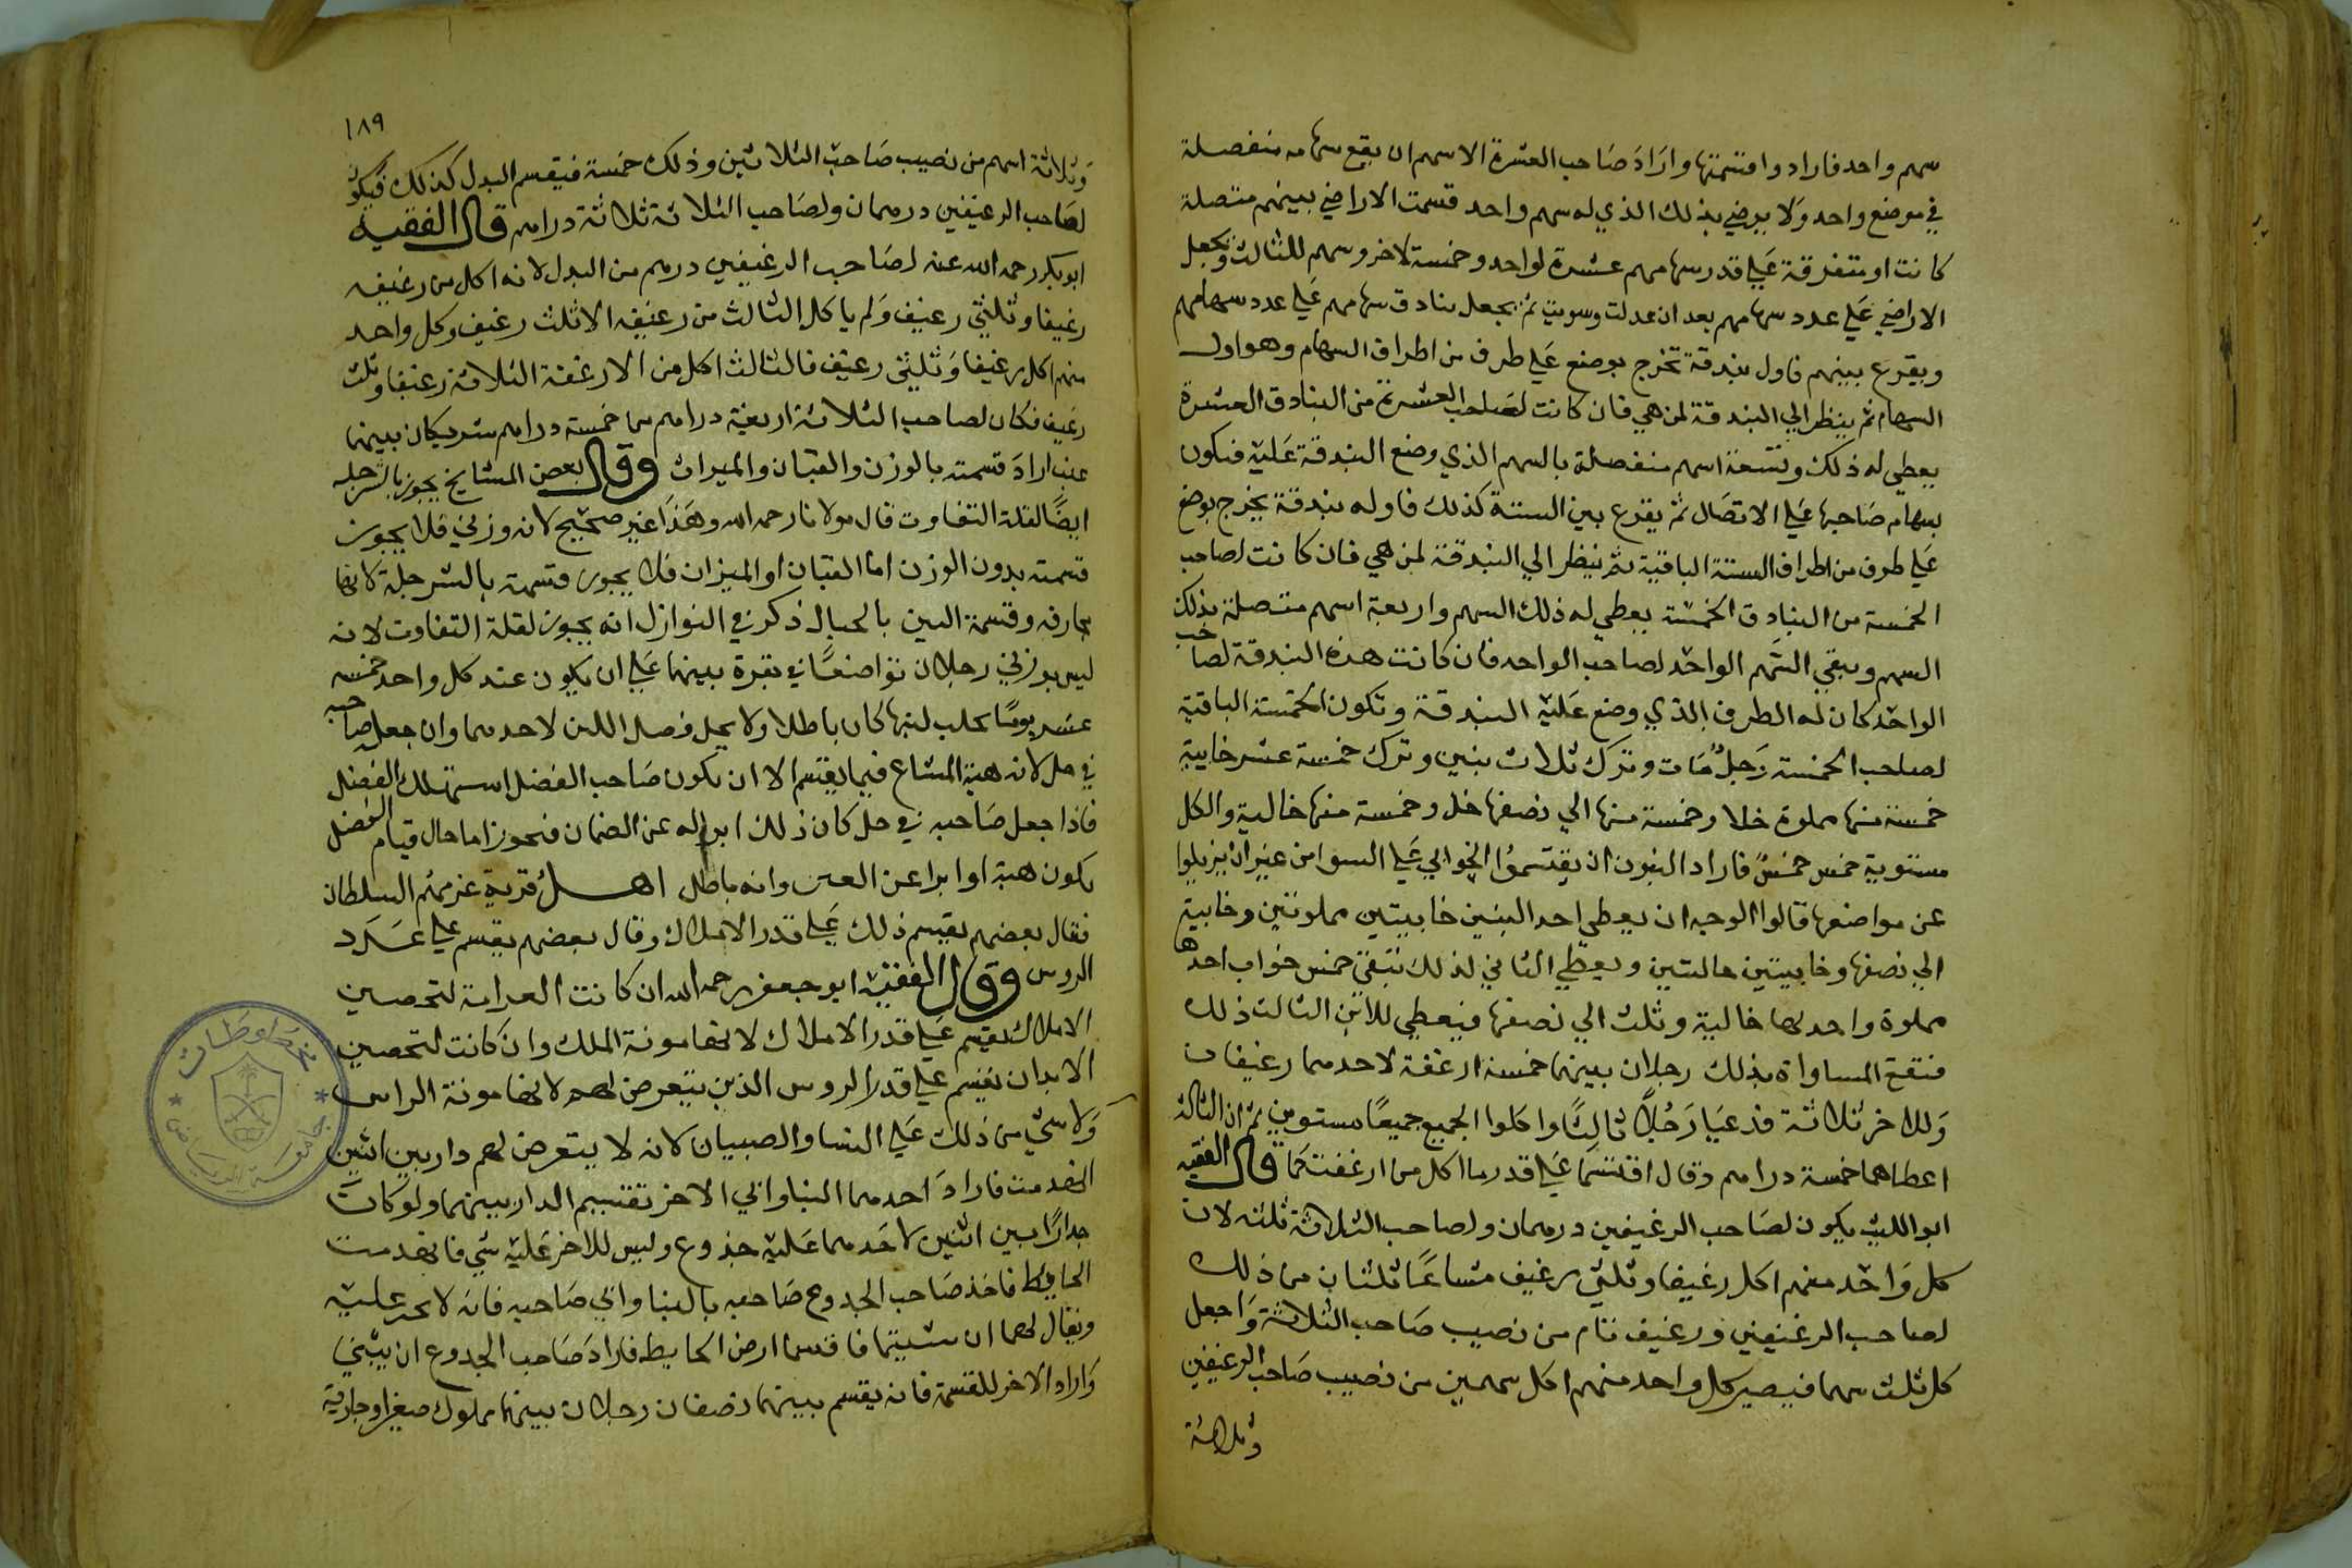 سهم واحد فارادوا قسمتها واراد صاحب العشرة الاسهم ان يقع سهامه منفصلة
في موضع واحد ولا يرضي بذلك الذي له سهم واحد قسمت الاراضي بينهم متصلة
كانت او متفرقة علي قدر سهامهم عشرة لواحد وخمسة لاخر وسهم للثالث وتجعل
الاراضي علي عدد سهامهم بعد ان عدلت وسويت ثم يجعل بنادق سهامهم علي عدد سهامهم
ويقرع بينهم فاول بندقة تخرج يوضع علي طرف من اطراف السهام وهو اول
السهام ثم ينظر الي البندقة لمن هي فان كانت لصاحب العشرة من البنادق العشرة
يعطي له ذلك وتسعة اسهم منفصلة بالسهم الذي وضع البندقة عليه فتكون
سهام صاحبها علي الاتصال ثم يقرع بين الستة كذلك فاوله بندقة يخرج يوضع
علي طرف من اطراف الستة الباقية ثم ينظر الي البندقة لمن هي فان كانت لصاحب
الخمسة من البنادق الخمسة يعطي له ذلك السهم واربعة اسهم متصلة بذلك
السهم ويبقي السهم الواحد لصاحب الواحد فان كانت هذه البندقة لصاحب
الواحد كان له الطرف الذي وضع عليه البندقة وتكون الخمسة الباقية
لصاحب الخمسة رجل مات وترك ثلاث بنين وترك خمسة عشر خابية
خمسة منها مملوة خلا وخمسة منها الي نصفها خل وخمسة منها خالية والكل
مستوية خمس خمس فاراد البنون ان يقتسموا الخوابي علي السوا من غير ان يزيلوا
عن مواضعها قالوا الوجه ان يعطي احد البنين خابيتين مملوتين وخابية
الي نصفها وخابيتين خاليتين ويعطي الثاني لذلك تبقي خمس خواب احدها
مملوة واحديها خالية وثلث الي نصفها فيعطي للابن الثالث ذلك
فتقع المساواة بذلك رجلان بينهما خمسة ارغفة لاحدهما رغيفان
وللاخر ثلاثة فدعيا رجلا ثالثا واكلوا الجميع جميعا مستوين ثم ان الثالث
اعطاهما خمسة دراهم وقال اقتسما علي قدر ما اكل من ارغفتكما قال الفقيه
ابو الليث يكون لصاحب الرغيفين درهمان ولصاحب الثلاثة ثلثه لان
كل واحد منهم اكل رغيفا وثلثي رغيف مشاعا ثلثان من ذلك
لصاحب الرغيفين ورغيف تام من نصيب صاحب الثلاثة واجعل
كل ثلث سهما فيصير كل واحد منهم اكل سهمين من نصيب صاحب الرغيفين
وثلاثة
١٨٩
وثلاثة اسهم من نصيب صاحب الثلاثين وذلك خمسة فيقسم البدل كذلك فيكون
لصاحب الرغيفين درهمان ولصاحب الثلاثة ثلاثة دراهم قال الفقيه
ابو بكر رحمه الله عنه لصاحب الرغيفين درهم من البدل لانه اكل من رغيفه
رغيفا وثلثي رغيف ولم ياكل الثالث من رغيفه الا ثلث رغيف وكل واحد
منهم اكل رغيفا وثلثي رغيف فالثالث اكل من الارغفة الثلاثة رغيفا وثلث
رغيف فكان لصاحب الثلاثة اربعة دراهم من خمسة دراهم شريكان بينهما
عنب اراد قسمته بالوزن والقبان والميزان وقال بعض المشايخ يجوز بالشرجله
ايضا لقلة التفاوت قال مولانا رحمه الله وهذا غير صحيح لانه وزني فلا يجوز
قسمته بدون الوزن اما القبان او الميزان فلا يجوز قسمته بالشرجلة لانها
مجازفه وقسمة التبن بالحبال ذكر في النوازل انه يجوز لقلة التفاوت لانه
ليس بوزني رجلان تواضعا في بقرة بينهما علي ان يكون عند كل واحد خمسه
عشر يوما يحلب لبنها كان باطلا ولا يحل فضل اللبن لاحدهما وان جعل صاحبه
في حل لانه هبة المشاع فيما يقسم الا ان يكون صاحب الفضل استهلك الفضل
فاذا جعل صاحبه في حل كان ذلك ابرا له عن الضمان فيجوز اما حال قيام الفضل
يكون هبة او ابرا عن العين وانه باطل اهل قرية غرمهم السلطان
فقال بعضهم يقسم ذلك علي قدر الاملاك وقال بعضهم يقسم علي عدد
الروس وقال الفقيه ابو جعفر رحمه الله ان كانت الغرامة لتحصين
الاملاك يقسم علي قدر الاملاك لانها مونة الملك وان كانت لتحصين
الابدان يقسم علي قدر الروس الذين يتعرض لهم لانها مونة الراس
ولا شي من ذلك علي النسا والصبيان لانه لا يتعرض لهم دار بين اثنين
انهدمت فاراد احدهما البنا وابي الاخر تقسيم الدار بينهما ولو كان
جدارا بين اثنين لاحدهما عليه جذوع وليس للاخر عليه شي فانهدمت
الحايط فاخذ صاحب الجدوع صاحبه بالبنا وابي صاحبه فانه لا يجبر عليه
ويقال لهما ان شيتما فاقسما ارض الحايط فاراد صاحب الجدوع ان يبني
واراد الاخر للقسمة فانه يقسم بينهما نصفان رجلان بينهما مملوك صغير او جارية